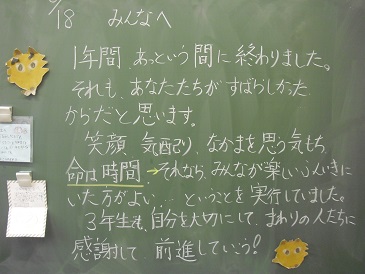 /18 みんなへ
1年間、あっという間に終わりました。
それも、あなたたちがすばらしかった
からだと思います。
笑顔、気配り、なかまを思う気もち、
命は時間→それなら、みんなが楽しいふんいき
いた方がよい… ということを実行していました。
3年生も、自分を大切にして、まわりの人たちに
感謝して、前進していこう!